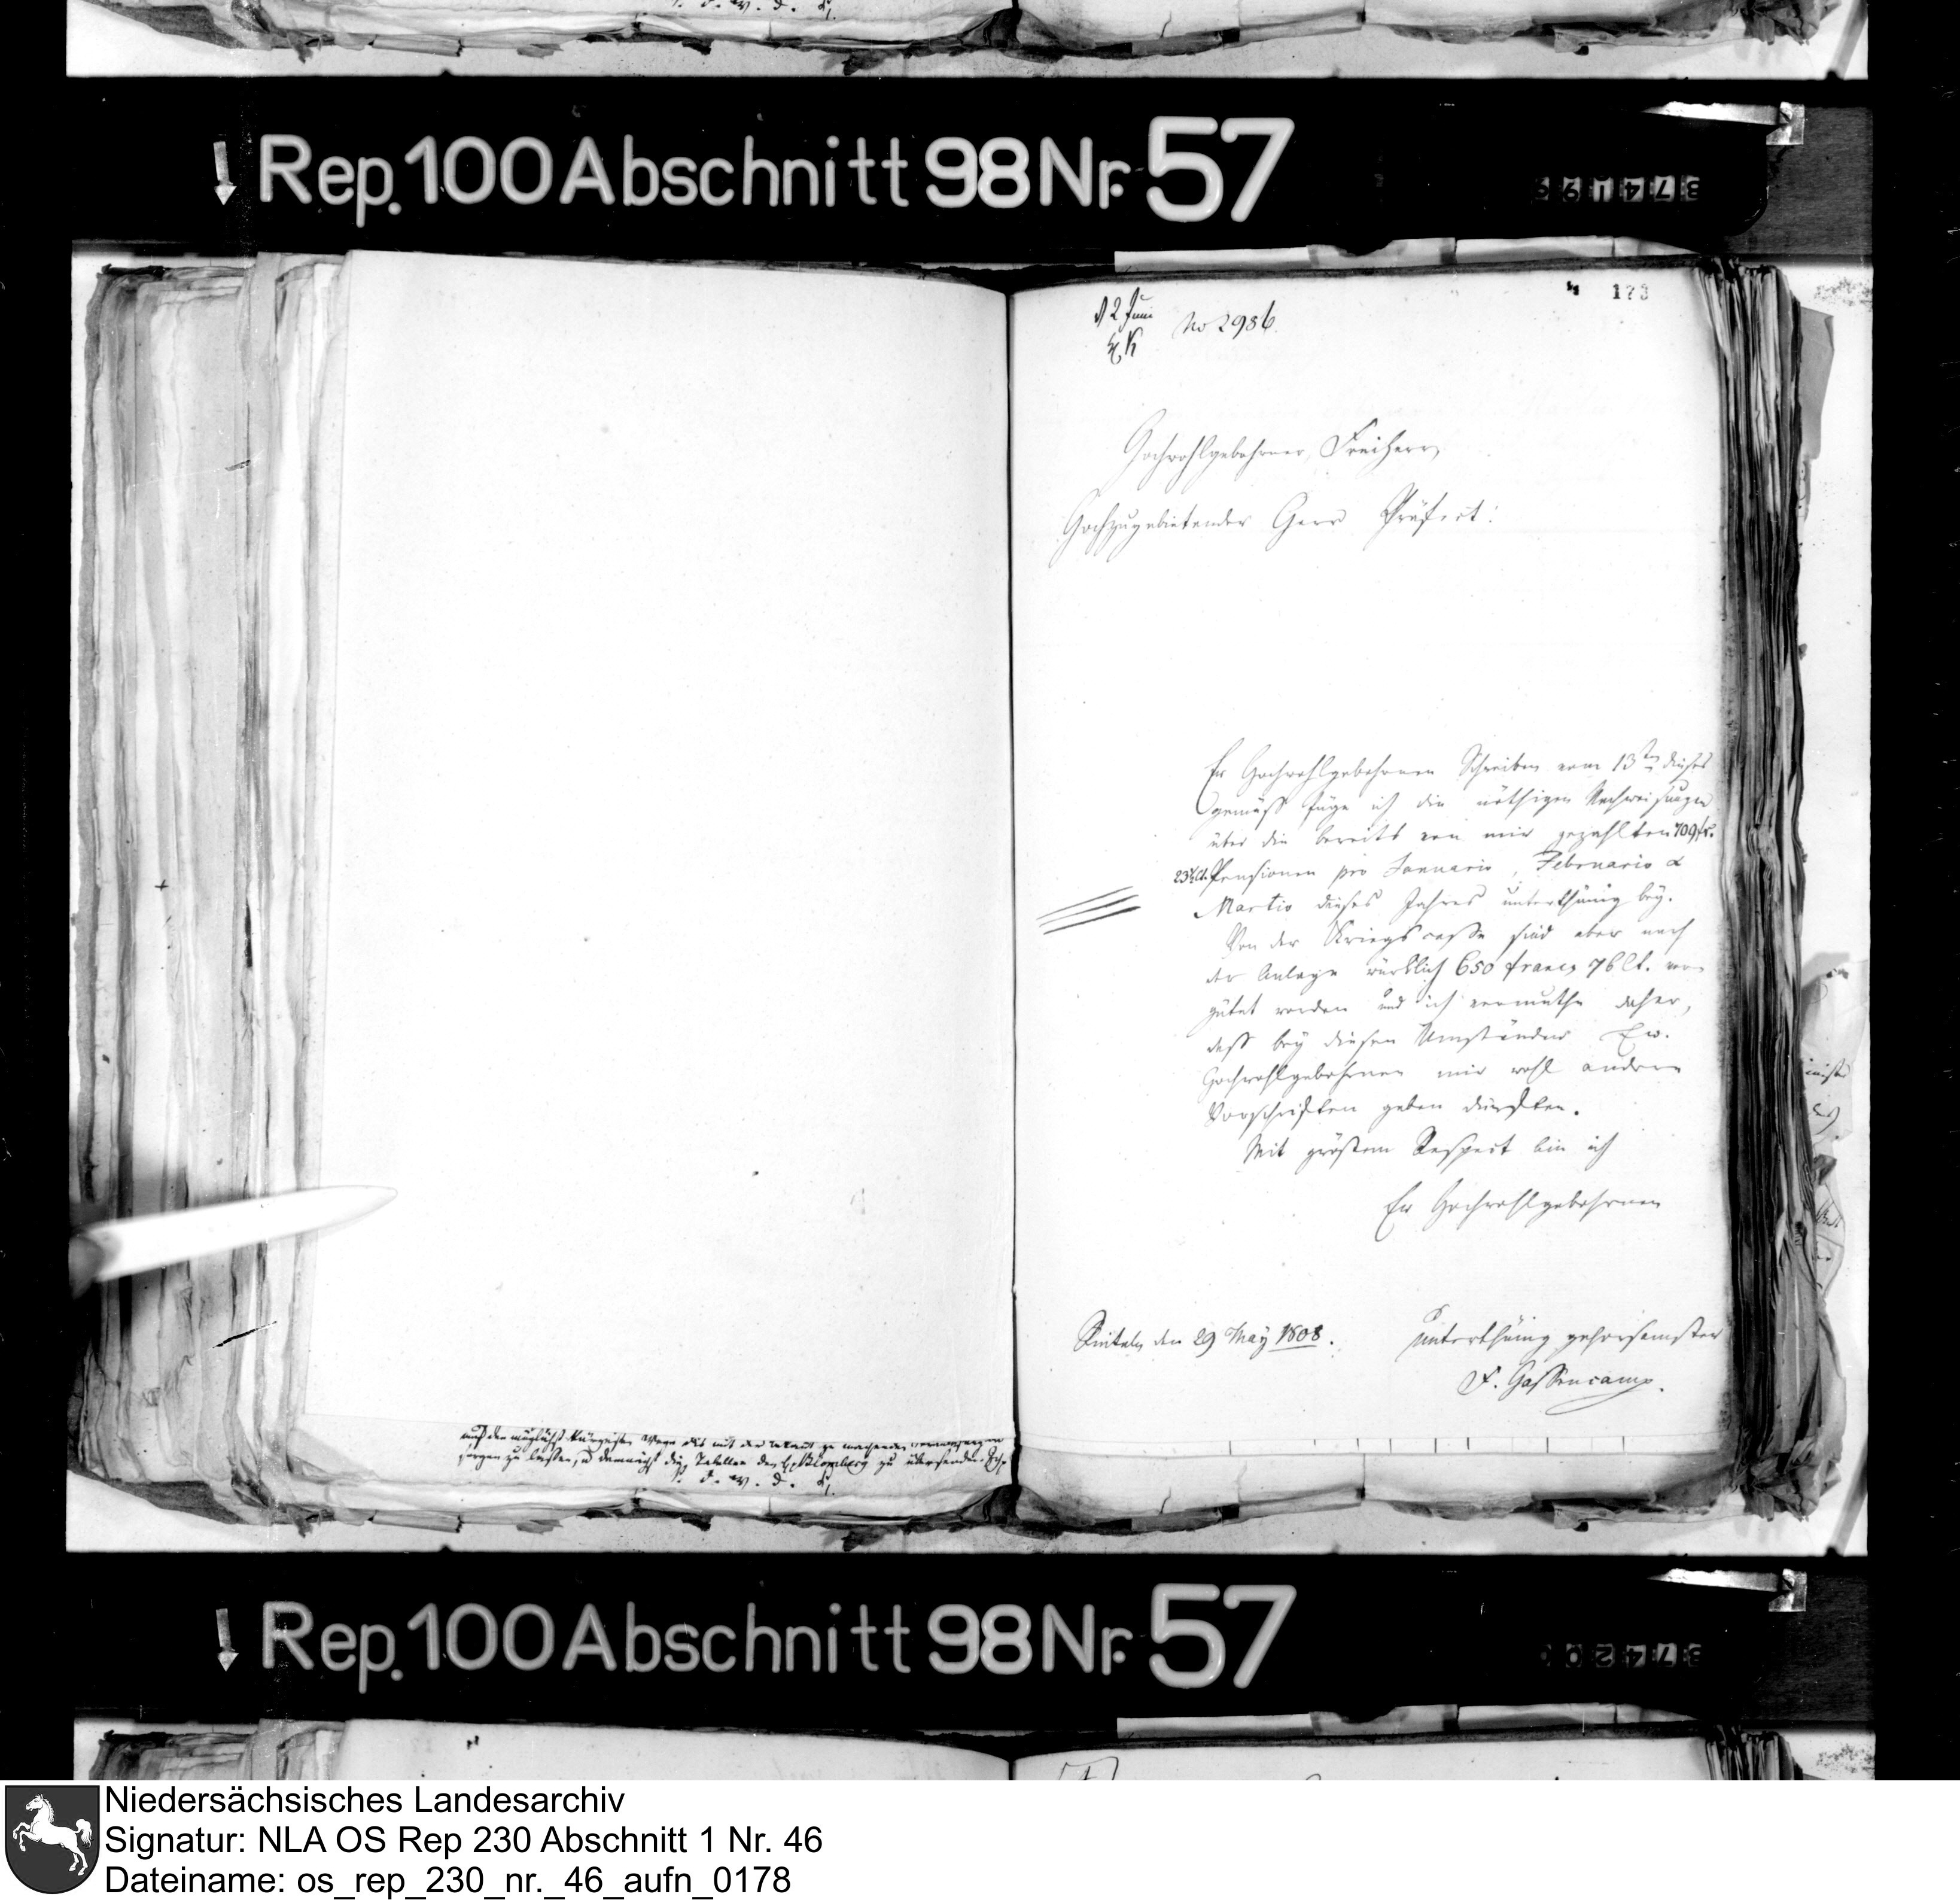 Rep. 100 Abschnitt 98 Nr. 57
173
2 Juni
No 2986.
Hochwohlgebohrner, Freiherr,
Hochzugebietender Herr Präfect!
Ew Hochwohlgebohrnen Schreiben vom 13ten dieses
gemäß füge ich die nöthigen Nachweisungen
über die bereits von mir gezahlten 709 fr.
23½ Ct. Pensionen pro Januario, Februario &
Martio dieses Jahres unterthänig bey.
Von der Kriegscasse sind aber nach
der Anlage würklich 650 francs 76 Ct. ver-
gütet worden und ich vermuthe daher,
daß bey diesen Umständen Ew.
Hochwohlgebohrnen mir wohl andere
Vorschriften geben dürften.
Mit größtem Respect bin ich
Ew Hochwohlgebohrnen
Rinteln den 29 May 1808.
unterthänig gehorsamster
F. Hassencamp.
auf dem möglichst kürzesten Wege
sorgen zu lassen, u demnächst die Tabellen
Rep. 100 Abschnitt 98 Nr. 57
Niedersächsisches Landesarchiv
Signatur: NLA OS Rep 230 Abschnitt 1 Nr. 46
Dateiname: os_rep_230_nr._46_aufn_0178